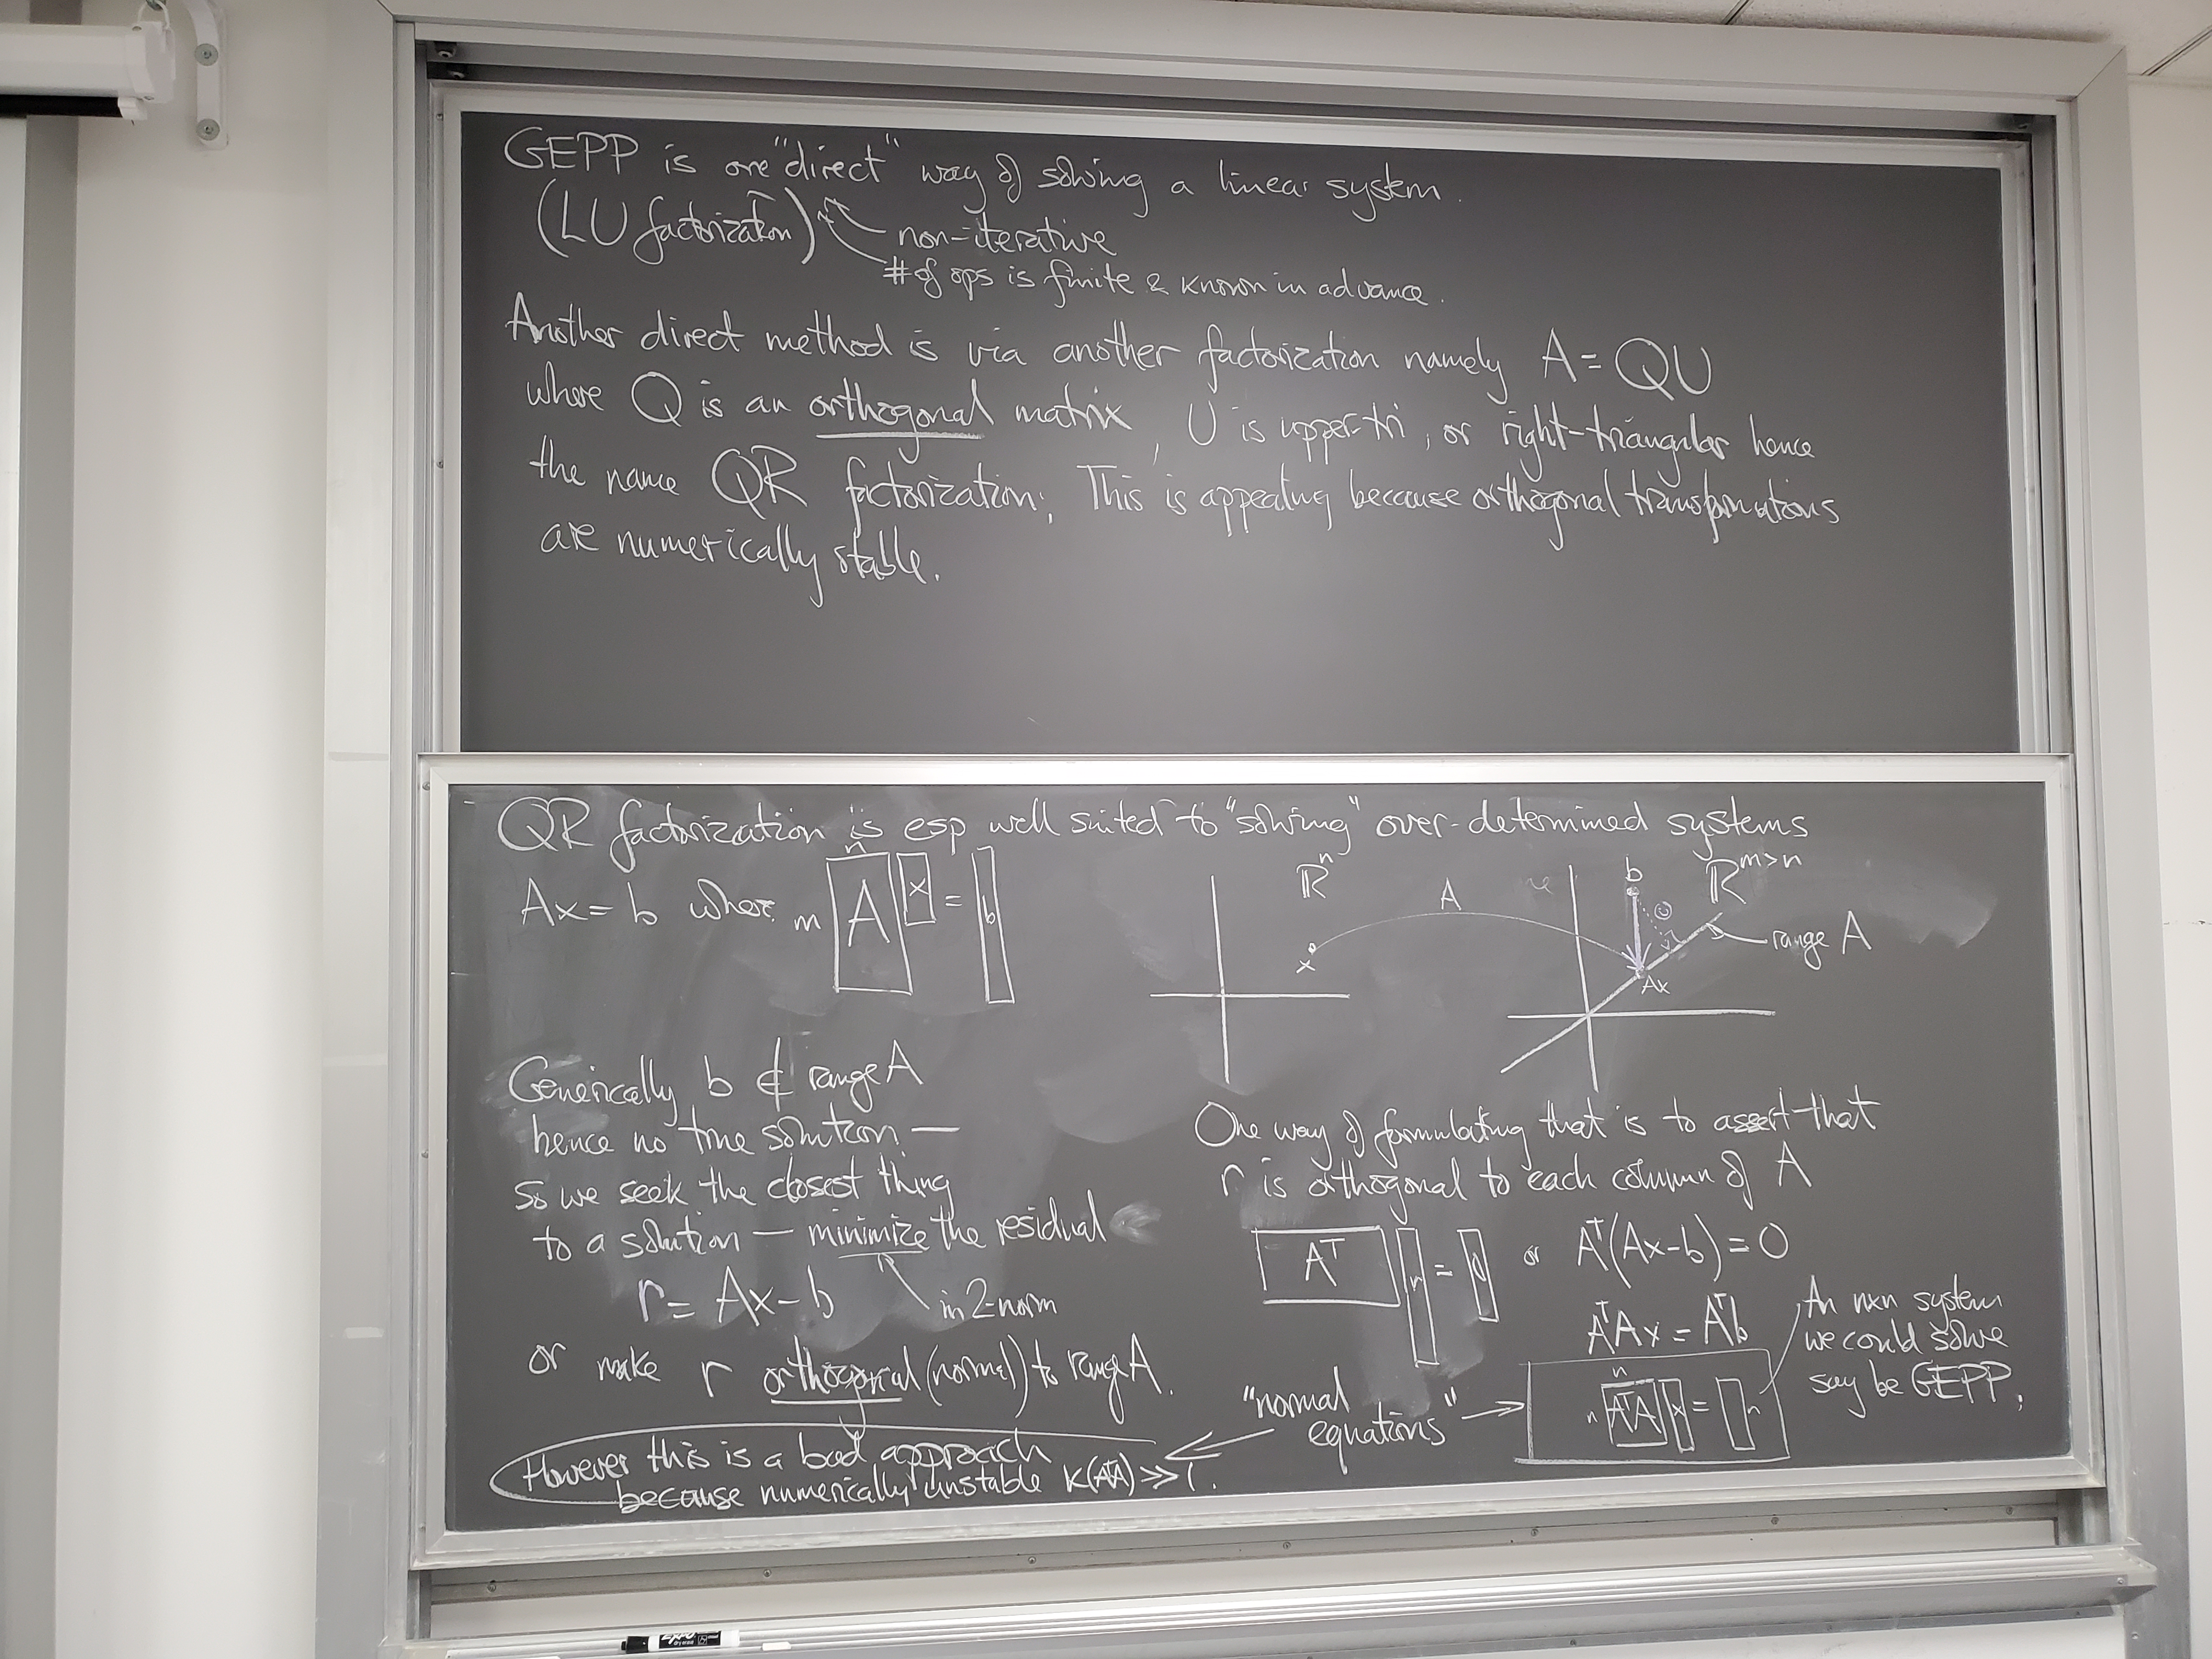 GEPP is one "direct" way of solving a linear system.
(LU factorization)
non-iterative
# of ops is finite & known in advance.
Another direct method is via another factorization namely A = QU
where Q is an orthogonal matrix, U is upper-tri, or right-triangular hence
the name QR factorization; This is appealing because orthogonal transformations
are numerically stable.
QR factorization is esp well suited to "solving" over-determined systems
Ax = b where
n
m A x = b
ℝⁿ
x
A
b
ℝ^{m>n}
range A
Ax
Generically b ∉ range A
hence no true solution —
so we seek the closest thing
to a solution — minimize the residual
r = Ax - b
in 2-norm
or make r orthogonal (normal) to range A.
However this is a bad approach
because numerically unstable K(AᵀA) ≫ 1.
One way of formulating that is to assert that
r is orthogonal to each column of A
Aᵀ r = 0 or Aᵀ(Ax-b) = 0
AᵀAx = Aᵀb
"normal
equations"
n
n AᵀA x =
An n×n system
we could solve
say be GEPP.
EXPO